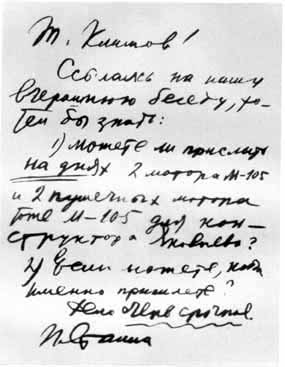 Т. Климов!
Ссылаясь на нашу
вчерашнюю беседу, хо-
тел бы знать:
1) Можете ли прислать
на днях 2 мотора М-105
и 2 пушечных мотора
тоже М-105 для кон-
структора Яковлева?
2) Если можете, когда
именно пришлете?
Дело очень срочное.
И. Сталин